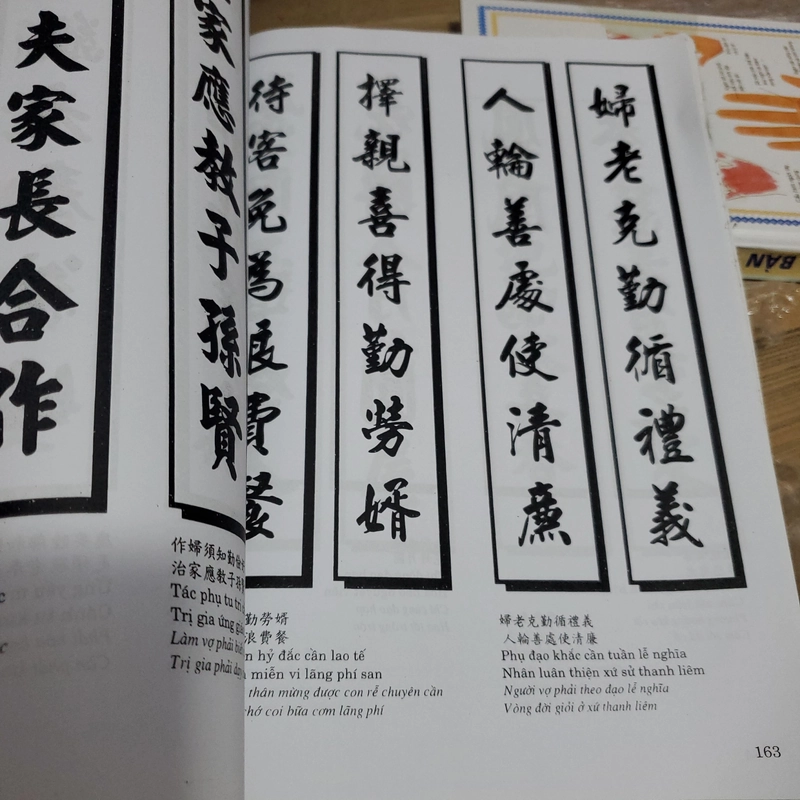 夫家長合作
家應教子孫賢
作婦須知勤儉
治家應教子
Tác phụ tu tri
Trị gia ứng
Làm vợ phải
Trị gia phải
待客免為費餐
擇親喜得勤勞婿
人輪善處使清廉
婦老克勤循禮義
勤勞婿
浪費餐
hỷ đắc cần lao tế
miễn vi lãng phí san
thân mừng được con rể chuyên cần
coi bữa cơm lãng phí
婦老克勤循禮義
人輪善處使清廉
Phụ đạo khắc cần tuần lễ nghĩa
Nhân luân thiện xứ sử thanh liêm
Người vợ phải theo đạo lễ nghĩa
Vòng đời giỏi ở xứ thanh liêm
163
BÀN